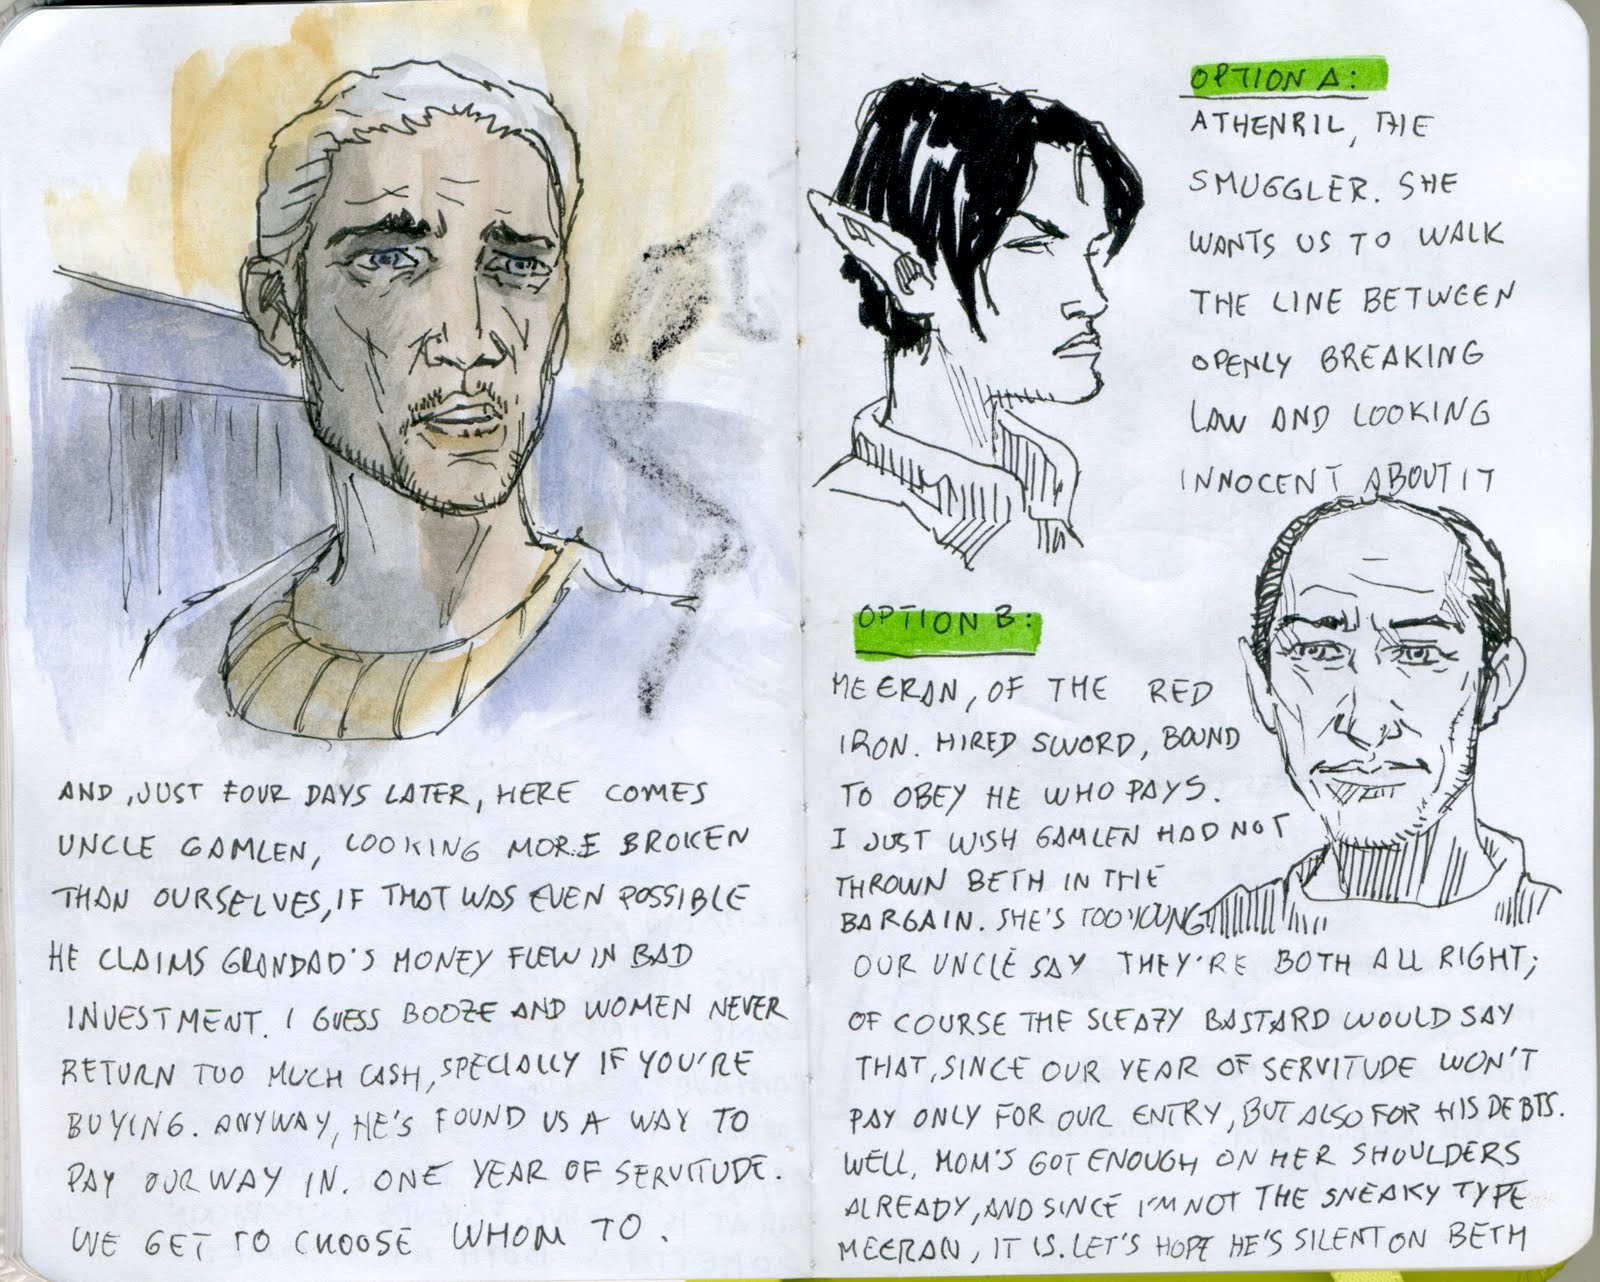 AND, JUST FOUR DAYS LATER, HERE COMES
UNCLE GAMLEN, LOOKING MORE BROKEN
THAN OURSELVES, IF THAT WAS EVEN POSSIBLE
HE CLAIMS GRANDAD'S MONEY FLEW IN BAD
INVESTMENT. I GUESS BOOZE AND WOMEN NEVER
RETURN TOO MUCH CASH, SPECIALLY IF YOU'RE
BUYING. ANYWAY, HE'S FOUND US A WAY TO
PAY OUR WAY IN. ONE YEAR OF SERVITUDE.
WE GET TO CHOOSE WHOM TO.
OPTION A:
ATHENRIL, THE
SMUGGLER. SHE
WANTS US TO WALK
THE LINE BETWEEN
OPENLY BREAKING
LAW AND LOOKING
INNOCENT ABOUT IT
OPTION B:
MEERAN, OF THE RED
IRON. HIRED SWORD, BOUND
TO OBEY HE WHO PAYS.
I JUST WISH GAMLEN HAD NOT
THROWN BETH IN THE
BARGAIN. SHE'S TOO YOUNG
OUR UNCLE SAY THEY'RE BOTH ALL RIGHT;
OF COURSE THE SLEAZY BASTARD WOULD SAY
THAT, SINCE OUR YEAR OF SERVITUDE WON'T
PAY ONLY FOR OUR ENTRY, BUT ALSO FOR HIS DEBTS.
WELL, MOM'S GOT ENOUGH ON HER SHOULDERS
ALREADY, AND SINCE I'M NOT THE SNEAKY TYPE
MEERAN, IT IS. LET'S HOPE HE'S SILENT ON BETH